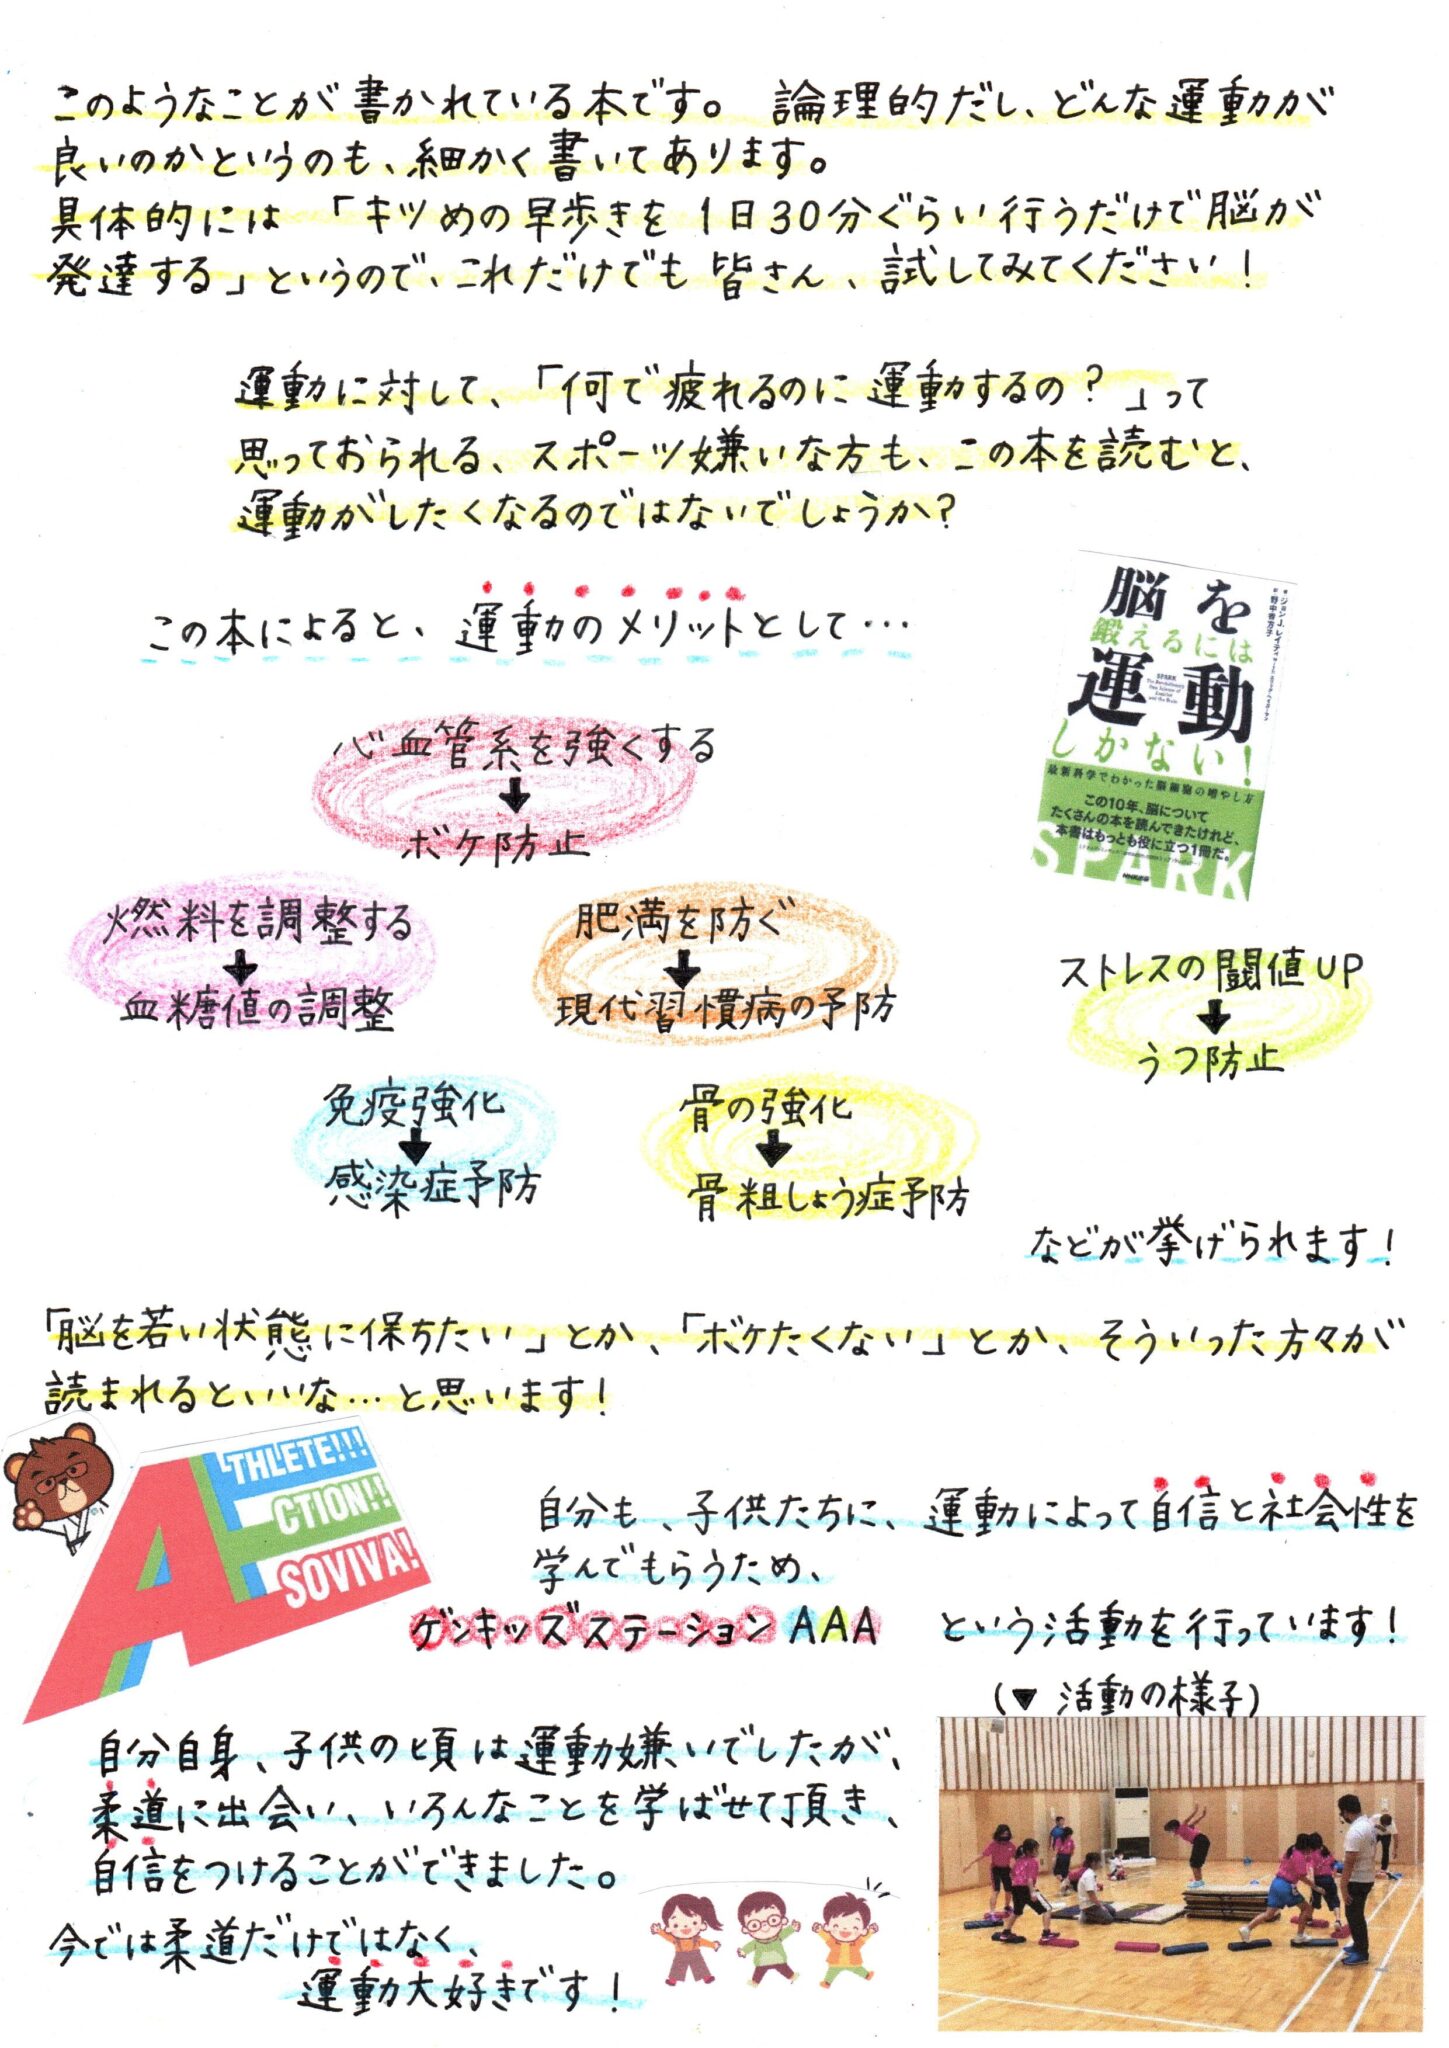 このようなことが書かれている本です。 論理的だし、どんな運動が
良いのかというのも、細かく書いてあります。
具体的には 「キツめの早歩きを1日30分ぐらい行うだけで脳が
発達する」というので、これだけでも皆さん、試してみてください!
運動に対して、「何で疲れるのに運動するの?」って
思っておられる、スポーツ嫌いな方も、この本を読むと、
運動がしたくなるのではないでしょうか?
この本によると、運動のメリットとして…
脳を
鍛えるには
運動
しかない!
SPARK
最新科学でわかった脳細胞の増やし方
この10年、脳について
たくさんの本を読んできたけれど、
本書はもっとも役に立つ1冊だ。
SPARK
心血管系を強くする
↓
ボケ防止
燃料を調整する
↓
血糖値の調整
肥満を防ぐ
↓
現代習慣病の予防
ストレスの閾値UP
↓
うつ防止
免疫強化
↓
感染症予防
骨の強化
↓
骨粗しょう症予防
などが挙げられます!
「脳を若い状態に保ちたい」とか、「ボケたくない」とか、そういった方々が
読まれるといいな…と思います!
ATHLETE!!!
ACTION!!
ASOVIVA!
自分も、子供たちに、運動によって自信と社会性を
学んでもらうため、
ゲンキッズステーションAAA という活動を行っています!
(▼ 活動の様子)
自分自身、子供の頃は運動嫌いでしたが、
柔道に出会い、いろんなことを学ばせて頂き、
自信をつけることができました。
今では柔道だけではなく、
運動大好きです!